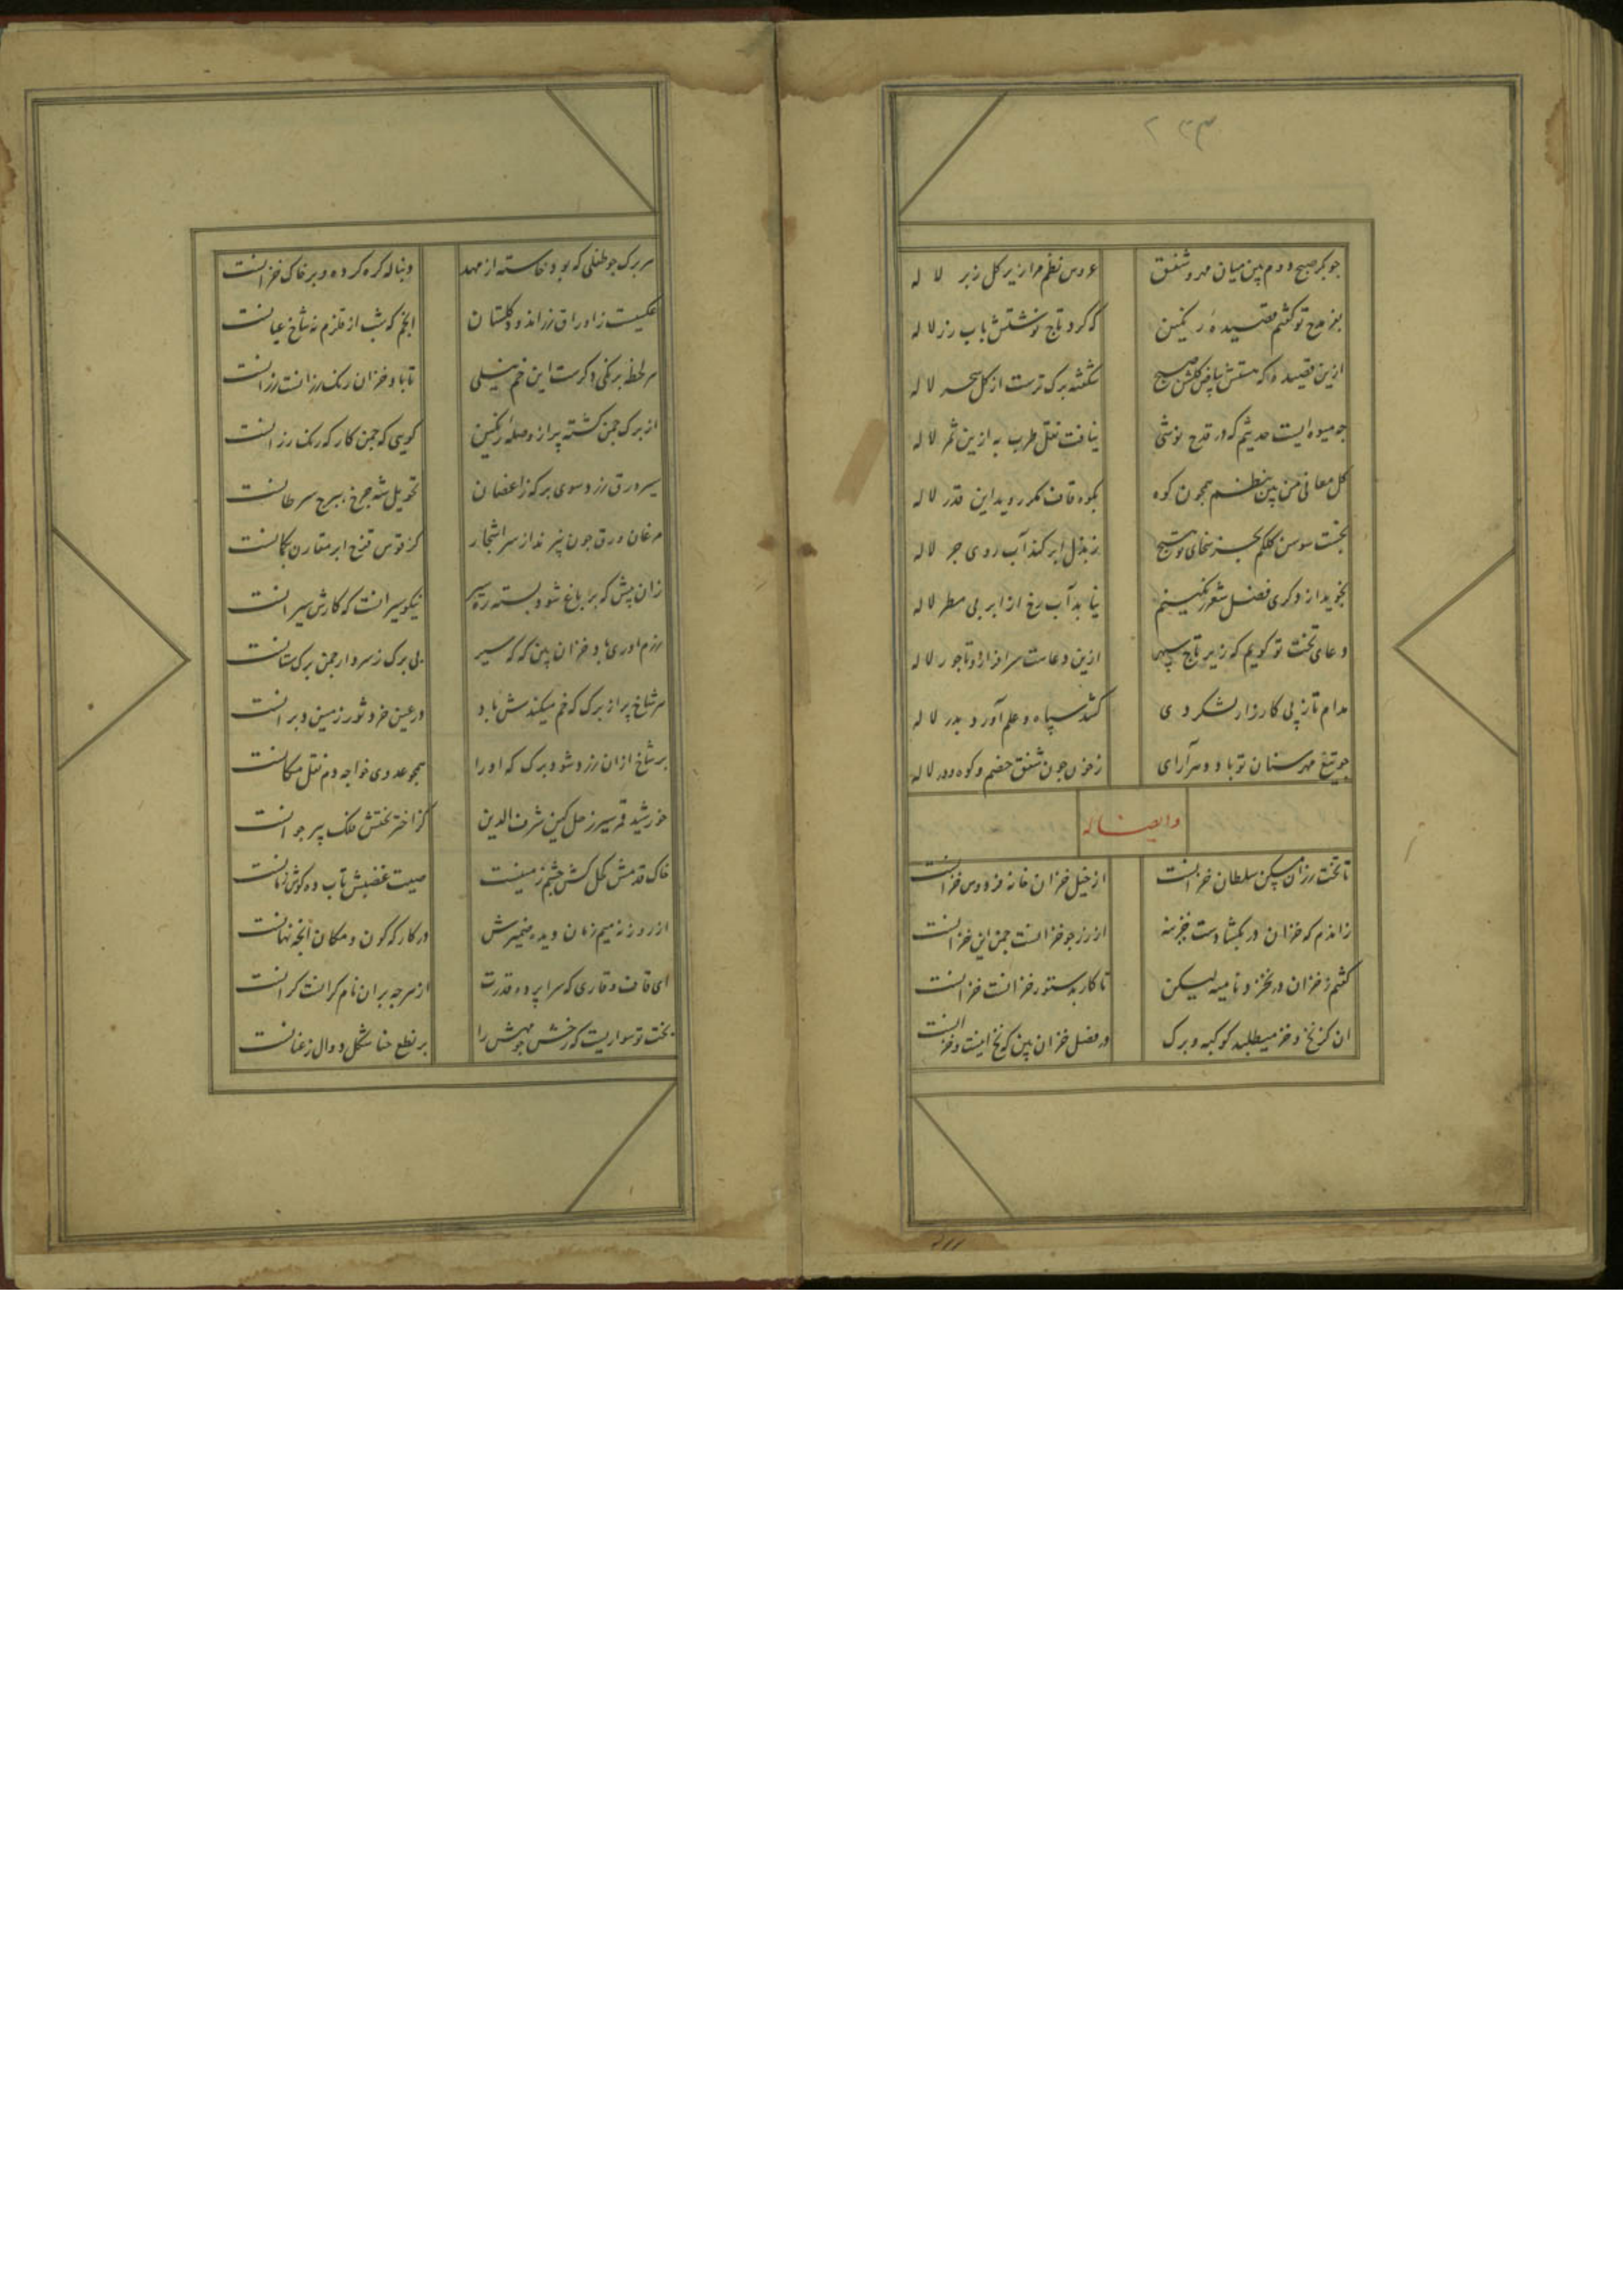 ۲۳۳
چو بکر صبح دوم بین میان مهد شفق
عروس نظم مرا زیر گل زبر لاله
بنز مدح تو گفتم قصیده رنگین
که کرد تاج نوشتش باب زر لاله
ازین قصیده که هستش بیاض گلشن صبح
شکفته برگ ترست از گل سحر لاله
چو میوه ایست حدیثم که در قدح نوشی
نیافت نقل طرب به ازین ثمر لاله
گل معانی من بین بنظم همچون کوه
بکوه قاف نگر روید این قدر لاله
بجست سوسن کلکم بجز سخای تو هیچ
ز بذل ابر کند آب روی جر لاله
نجوید از دگری فضل شعر رنگینم
نیابد آب رخ از ابر بی مطر لاله
دعای تخت تو گویم که زیر تاج سپهر
ازین دعات سرافراز و تاجور لاله
مدام تا ز پی کارزار لشکر دی
کشد سپاه و علم آورد بدر لاله
چو تیغ مهر سنان تو باد و معرآرای
ز خون چون شفق خصم و کوه و در لاله
وایضا له
تا تخت رزان مسکن سلطان خزانست
از خیل خزان خانه فردوس خزانست
زاندم که خزان در بگشادست خزینه
از زر چو خزانست چمن این خزانست
گفتم ز خزان در نخزد نامیه لیکن
تا کار بدستور خزانست خزانست
ان کز نخ و خز میطلبد کوکبه و برگ
در فصل خزان بین که نخ اینست و خز انست
هر برگ چو طفلی که بود خاسته از مهد
دنباله کره کرده و بر خاک خزانست
عکسیست ز اوراق زراندود گلستان
انجم که شب از قلزم نه شاخ عیانست
هر لحظه برنگی دگرست این خم نیلی
تا باد خزان رنگ رزانست رزانست
از برگ چمن گشته پر از وصله رنگین
گویی که چمن کارگه رنگ رزانست
سیر ورق زرد سوی برکه ز اغصان
تحویل شه چرخ ببرج سرطانست
مرغان ورق چون نپرند از سر اشجار
کز قوس قزح ابر مقارن بکمانست
زان پیش که بر باغ شود بسته ره سیر
نیکو سیر انست که کارش سیرانست
رزم اوری باد خزان بین که گه سیر
بی برگ ز سرو ار چمن برگ ستانست
هر شاخ پر از برگ که خم میکندش باد
در عین خرد ثور زمین دبرانست
بر شاخ ازان زرد شود برگ که او را
همچو عدوی خواجه دم نقل مکانست
خورشید قمر سیر زحل کین شرف الدین
کز اختر بختش ملک پیر جوانست
خاک قدمش کحل کش چشم زمینست
صیت غضبش تاب ده گوش زمانست
از روزنه میم زمان دیده ضمیرش
در کارگه کون و مکان انچه نهانست
ای قاف وقاری که سراپرده قدرت
از هر چه بران نام گرانست گرانست
بخت تو سواریست که رخش مهش را
بر نطع حنا شکل دوال زعنانست